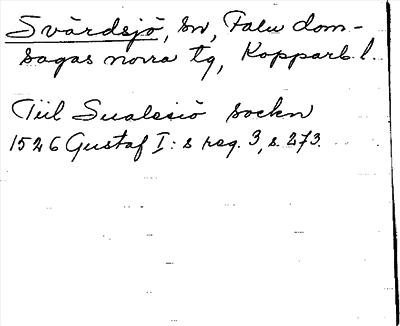 Svärdsjö, sn, Falu dom-
sagas norra tg, Kopparb. l.
Till Sualesiö sockn
1526 Gustaf I:s reg. 3, s. 273.